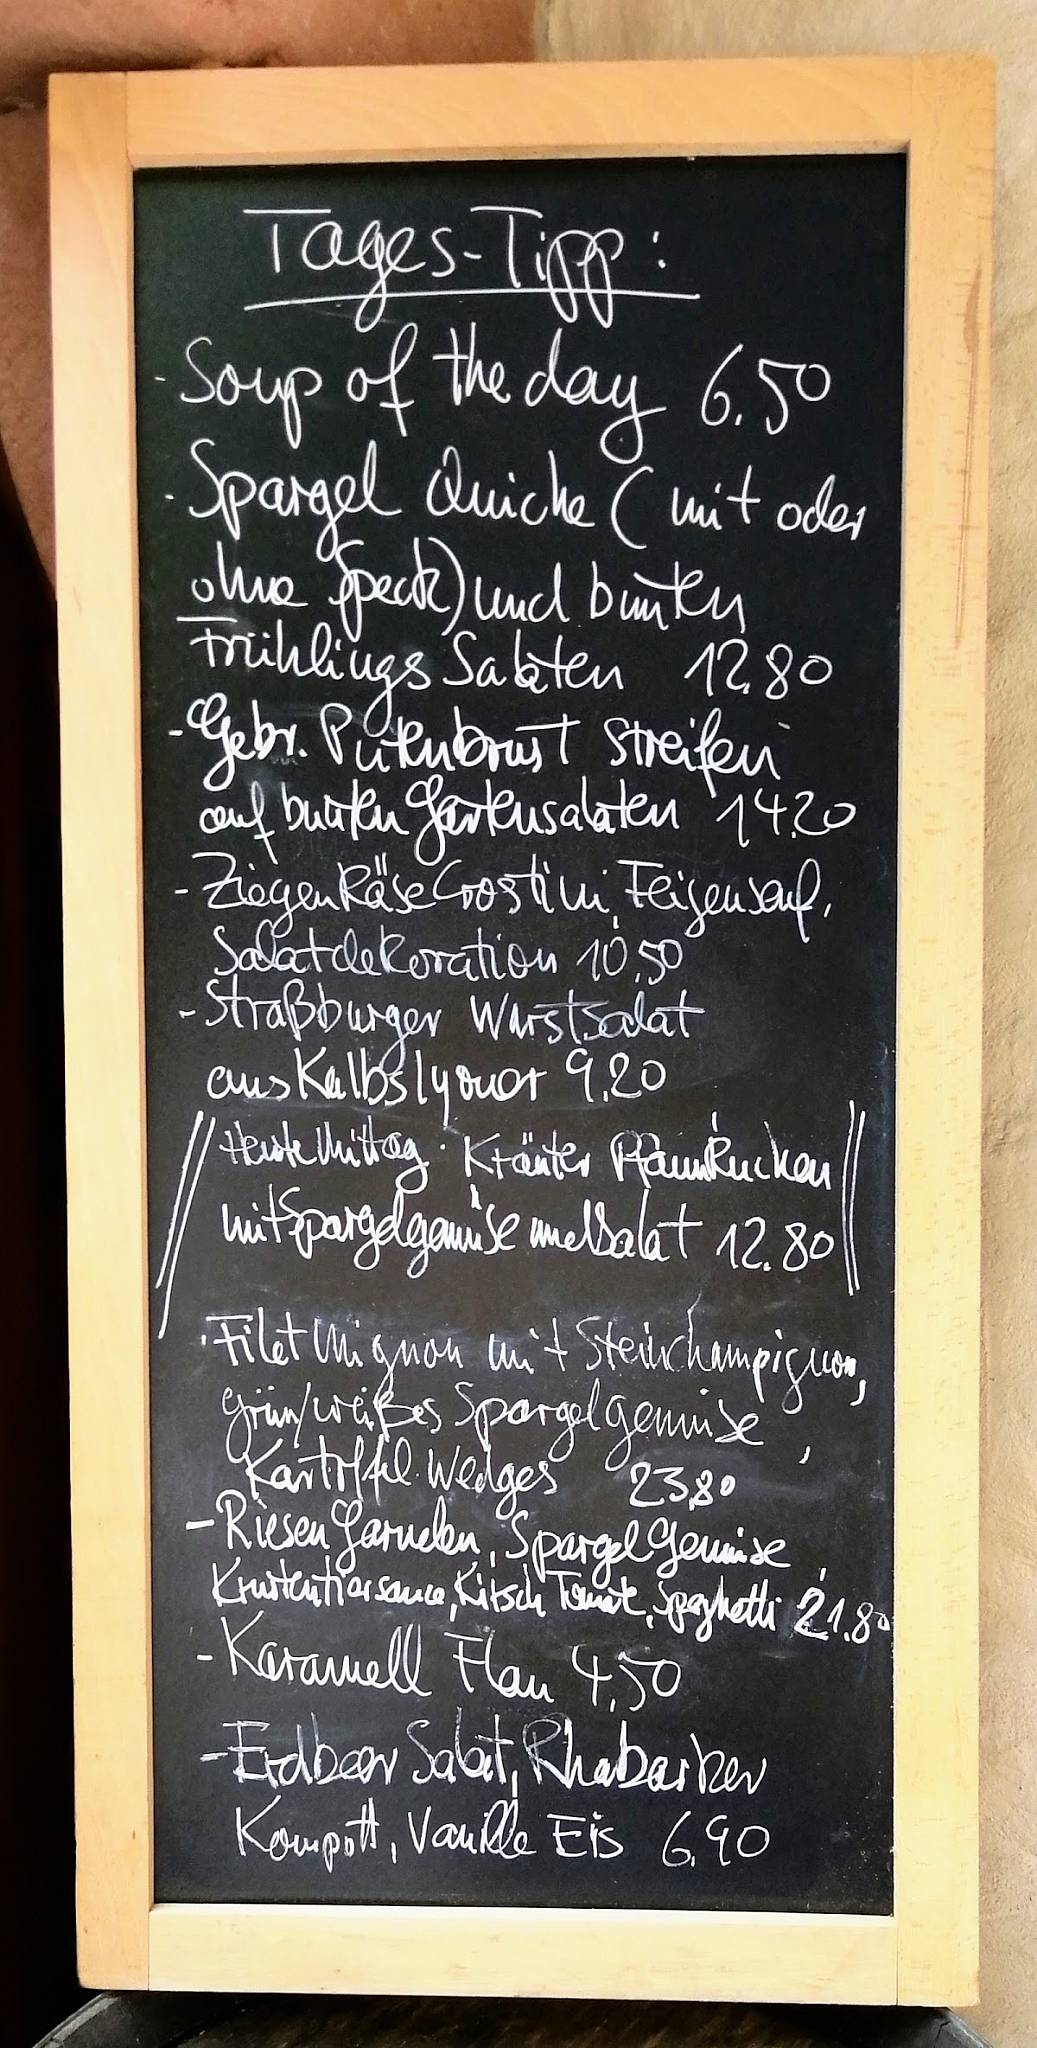 Tages-Tipp:
- Soup of the day 6.50
- Spargel Quiche (mit oder
ohne Speck) und bunten
Frühlings Salaten 12.80
- Gebr. Putenbrust Streifen
auf bunten Gartensalaten 14.20
- Ziegenkäse Crostini, Feigensenf,
Salatdekoration 10,50
- Straßburger Wurstsalat
aus Kalbslyoner 9,20
Heute Mittag: Kräuter Pfannkuchen
mit Spargelgemüse und Salat 12.80
- Filet Mignon mit Steinchampignon,
grün/weißes Spargelgemüse,
Kartoffel-Wedges 23,80
- Riesen Garnelen, Spargel Gemüse,
Krustentiersauce, Kirsch Tomate, Spaghetti 21.80
- Karamell Flan 4,50
- Erdbeer Salat, Rhabarber
Kompott, Vanille Eis 6,90